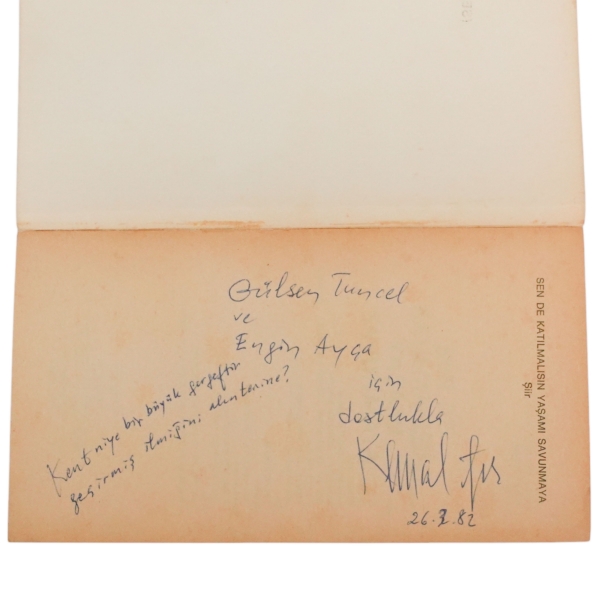 SEN DE KATILMALISIN YAŞAMI SAVUNMAYA
Şiir
Gülsen Tuncel
ve
Engin Ayça
için
dostlukla
Kemal
26. .82
Kent niye bir büyük gergeftir
geçirmiş ilmiğini alıntenine?